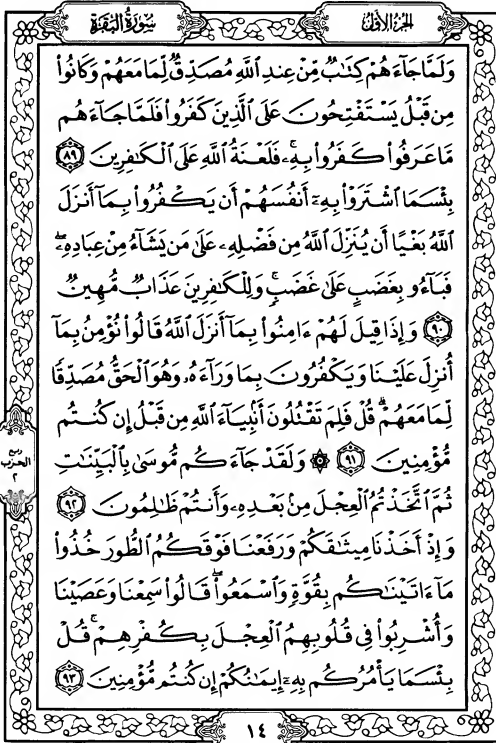 سُورَةُ البَقَرَة
الجُزءُ الأَوَّلُ
وَلَمَّا جَآءَهُمْ كِتَٰبٌ مِّنْ عِندِ ٱللَّهِ مُصَدِّقٌ لِّمَا مَعَهُمْ وَكَانُوا۟
مِن قَبْلُ يَسْتَفْتِحُونَ عَلَى ٱلَّذِينَ كَفَرُوا۟ فَلَمَّا جَآءَهُم
مَّا عَرَفُوا۟ كَفَرُوا۟ بِهِۦ ۚ فَلَعْنَةُ ٱللَّهِ عَلَى ٱلْكَٰفِرِينَ ٨٩
بِئْسَمَا ٱشْتَرَوْا۟ بِهِۦٓ أَنفُسَهُمْ أَن يَكْفُرُوا۟ بِمَآ أَنزَلَ
ٱللَّهُ بَغْيًا أَن يُنَزِّلَ ٱللَّهُ مِن فَضْلِهِۦ عَلَىٰ مَن يَشَآءُ مِنْ عِبَادِهِۦ ۖ
فَبَآءُو بِغَضَبٍ عَلَىٰ غَضَبٍ ۚ وَلِلْكَٰفِرِينَ عَذَابٌ مُّهِينٌ
٩٠ وَإِذَا قِيلَ لَهُمْ ءَامِنُوا۟ بِمَآ أَنزَلَ ٱللَّهُ قَالُوا۟ نُؤْمِنُ بِمَآ
أُنزِلَ عَلَيْنَا وَيَكْفُرُونَ بِمَا وَرَآءَهُۥ وَهُوَ ٱلْحَقُّ مُصَدِّقًا
لِّمَا مَعَهُمْ ۗ قُلْ فَلِمَ تَقْتُلُونَ أَنۢبِيَآءَ ٱللَّهِ مِن قَبْلُ إِن كُنتُم
مُّؤْمِنِينَ ٩١ ۞ وَلَقَدْ جَآءَكُم مُّوسَىٰ بِٱلْبَيِّنَٰتِ
ثُمَّ ٱتَّخَذْتُمُ ٱلْعِجْلَ مِنۢ بَعْدِهِۦ وَأَنتُمْ ظَٰلِمُونَ ٩٢
وَإِذْ أَخَذْنَا مِيثَٰقَكُمْ وَرَفَعْنَا فَوْقَكُمُ ٱلطُّورَ خُذُوا۟
مَآ ءَاتَيْنَٰكُم بِقُوَّةٍ وَٱسْمَعُوا۟ ۖ قَالُوا۟ سَمِعْنَا وَعَصَيْنَا
وَأُشْرِبُوا۟ فِى قُلُوبِهِمُ ٱلْعِجْلَ بِكُفْرِهِمْ ۚ قُلْ
بِئْسَمَا يَأْمُرُكُم بِهِۦٓ إِيمَٰنُكُمْ إِن كُنتُم مُّؤْمِنِينَ ٩٣
ربع
الحزب
٢
١٤